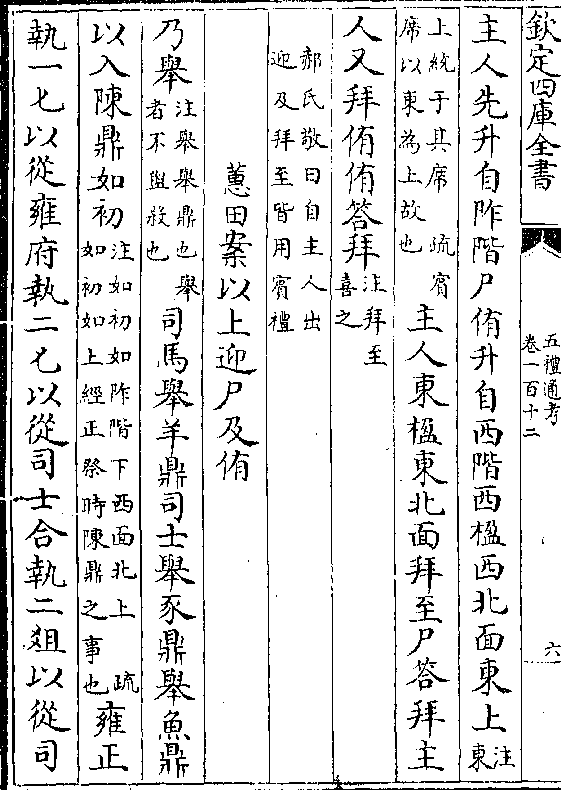 欽定四庫全書
五禮通考
卷一百十二
六
主人先升自阼階尸侑升自西階西楹西北面東上
注東
上統于其席
疏賓
席以東為上故也
主人東楹東北面拜至尸荅拜主
人又拜侑侑荅拜
注拜至
喜之
郝氏敬曰自主人出
迎及拜至皆用賓禮
蕙田案以上迎尸及侑
乃舉
注舉舉鼎也舉
者不盥殺也
司馬舉羊鼎司士舉豕鼎舉魚鼎
以入陳鼎如初
注如初如阼階下西面北上
疏
如初如上經正祭時陳鼎之事也
雍正
執一匕以從雍府執二匕以從司士合執二俎以從司